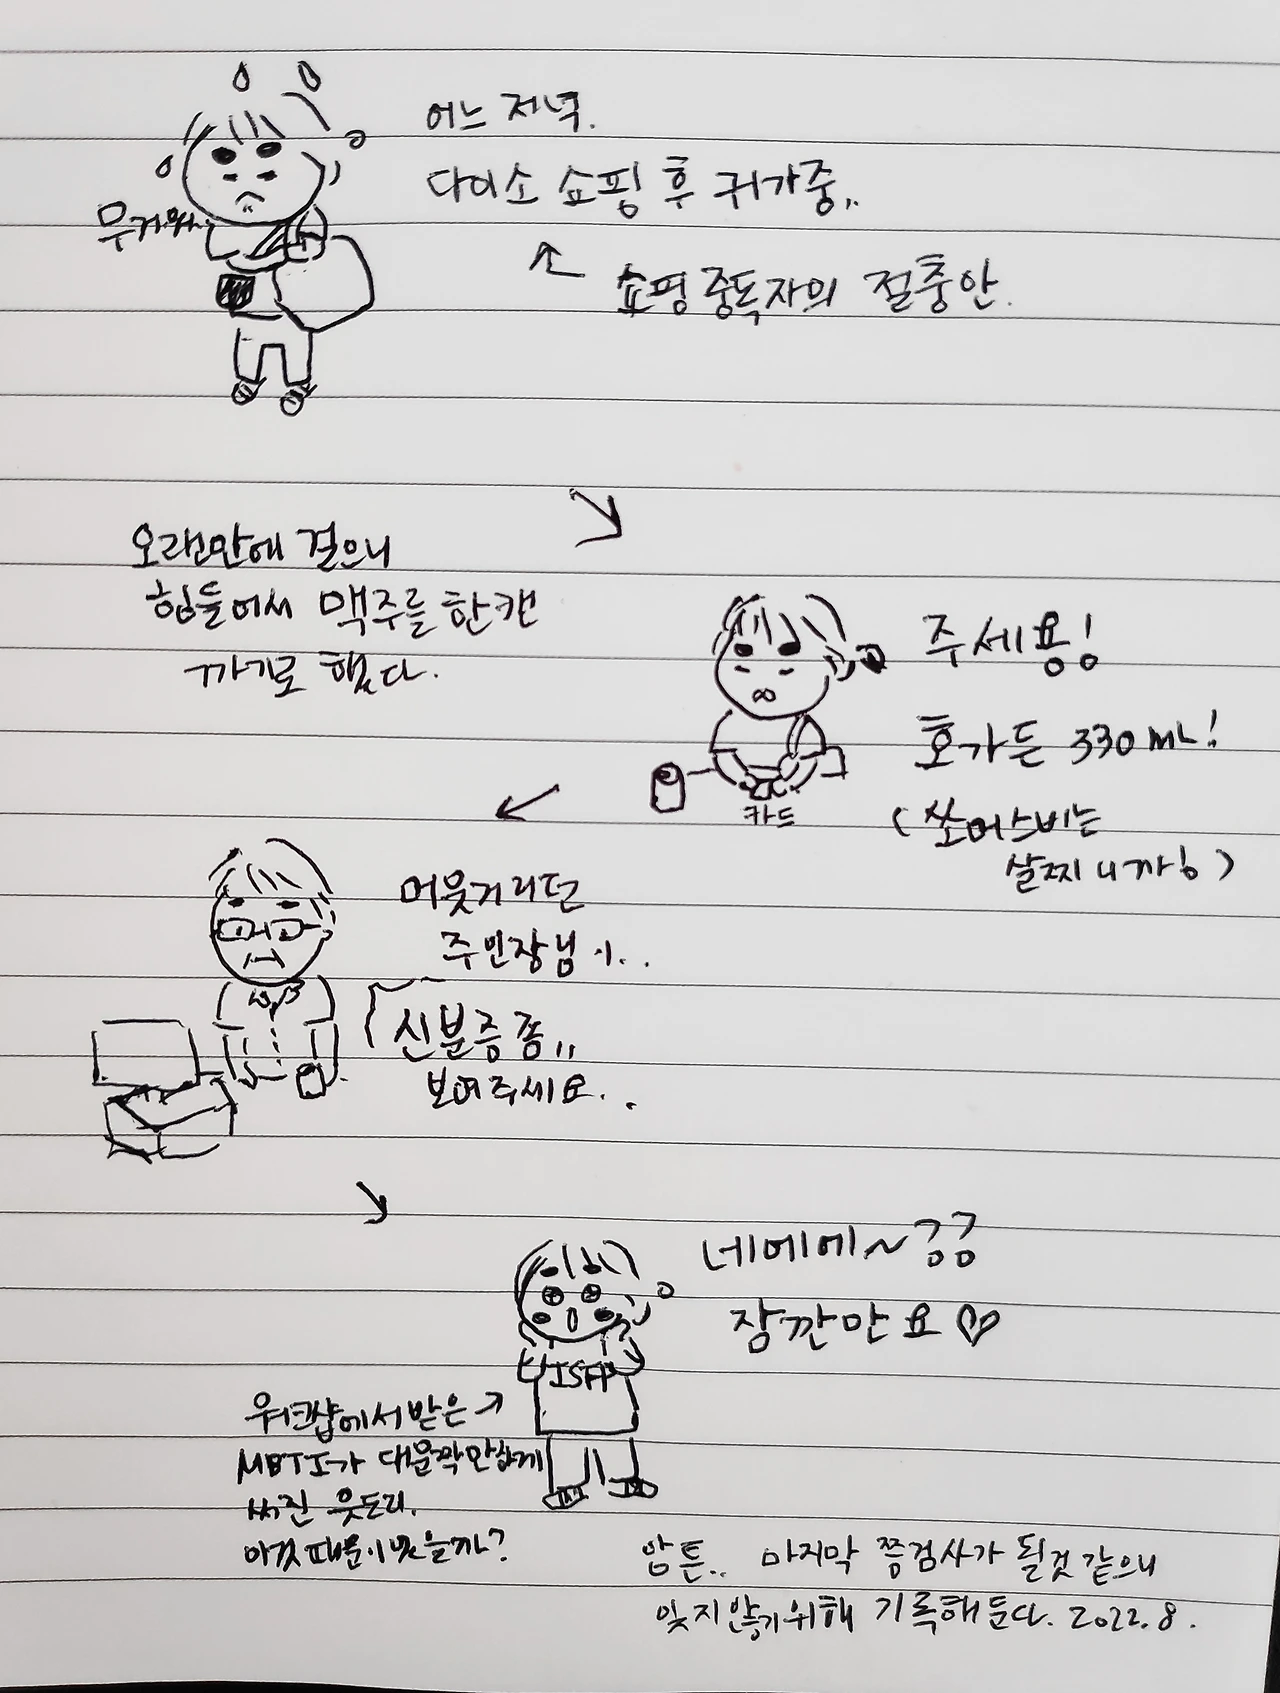 어느 저녁.
다이소 쇼핑 후 귀가중..
무거워
쇼핑 중독자의 절충안.
오랜만에 걸으니
힘들어서 맥주를 한캔
까기로 했다.
주세용!
호가든 330mL!
카드
(쏘어스비는
살찌니까!)
머뭇거리던
주인장님이..
신분증 쫌..
보여주세요..
네에에~ 킁킁
잠깐만요♡
ISFP
워크샵에서 받은
MBTI가 대문짝만하게
써진 웃도리.
이것 때문이었을까?
암튼.. 마지막 쯩검사가 될것 같으니
잊지않기위해 기록해둔다. 2022.8.